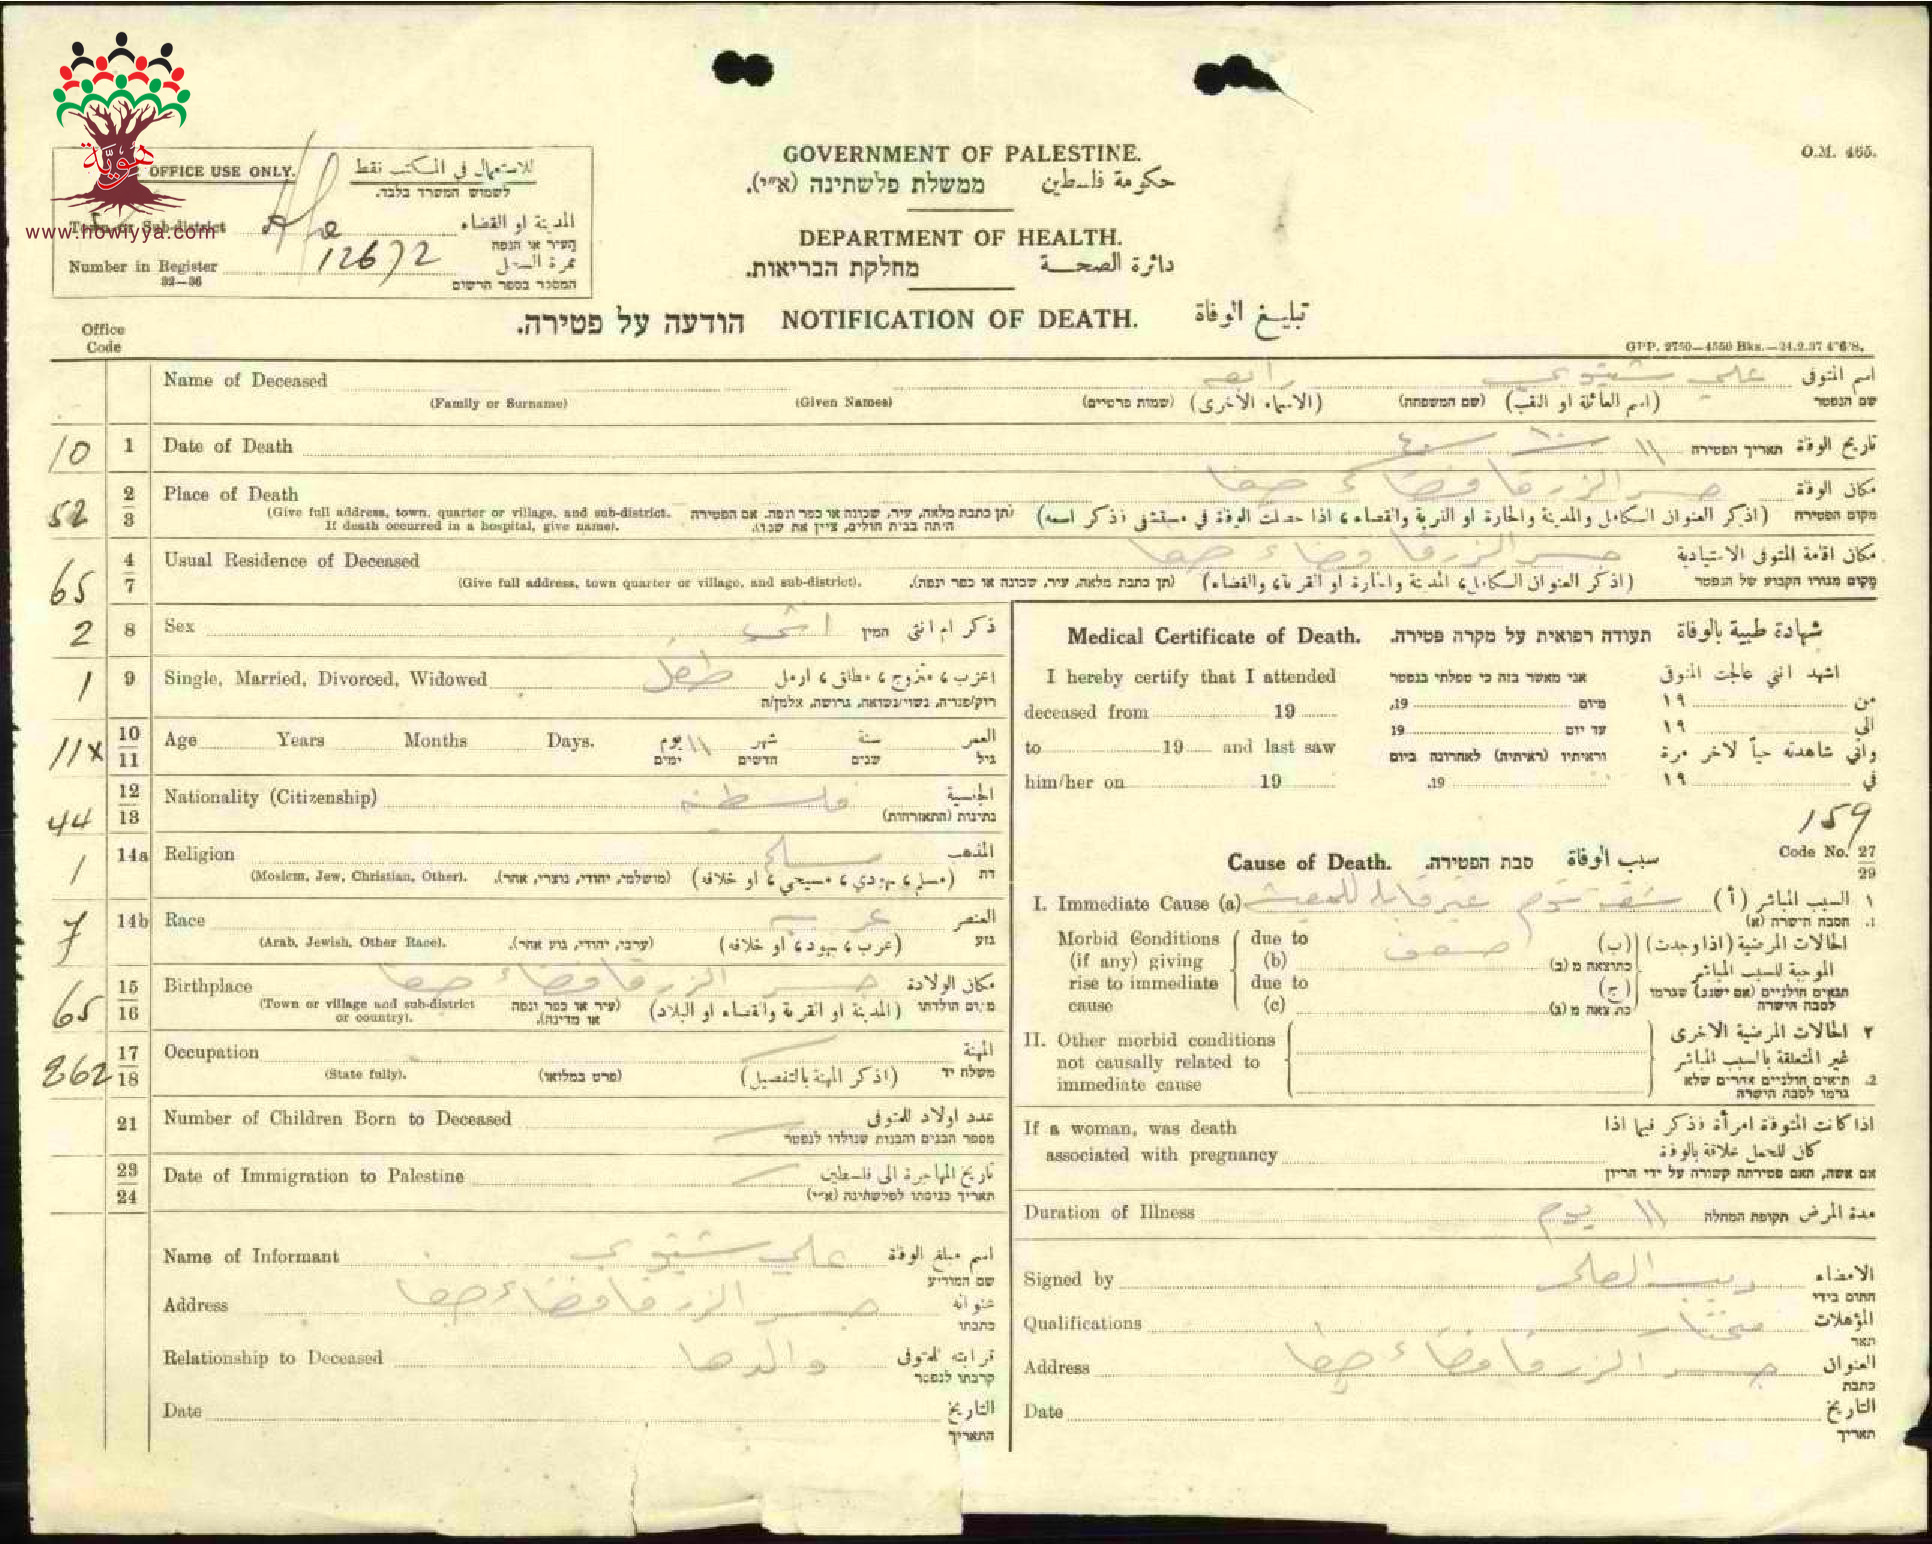 هويّة
www.howiyya.com
OFFICE USE ONLY. للاستعمال في المكتب نقط
לשמוש המשרד בלבד.
Town or Sub-district המدينة او القضاء
העיר או הנפה
Number in Register 12672 نمرة السجل
32—36 המספר בספר הרשום
GOVERNMENT OF PALESTINE.
ממשלת פלשתינה (א״י). حكومة فلسطين
DEPARTMENT OF HEALTH.
מחלקת הבריאות. دائرة الصحة
O.M. 465.
הודעה על פטירה. NOTIFICATION OF DEATH. تبليغ الوفاة
Office
Code
GPP. 2750—4550 Bks.—24.2.37
Name of Deceased رابعه علي شتيوي اسم المتوفى
(Family or Surname) (Given Names) (שמות פרטיים) (الاسماء الاخرى) (שם המשפחה) (اسم العائلة او اللقب) שם הנפטר
10 1 Date of Death ١١ ١٠ ٤٠ תאריך הפטירה تاريخ الوفاة
52 2 3 Place of Death جسر الزرقا قضاء حيفا مكان الوفاة
(Give full address, town, quarter or village, and sub-district. If death occurred in a hospital, give name).
(תן כתבת מלאה, עיר, שכונה או כפר ונפה. אם הפטירה היתה בבית חולים, ציין את שמו).
(اذكر العنوان الكامل والمدينة والحارة او القرية والقضاء، اذا حصلت الوفاة في مستشفى فذكر اسمه) מקום הפטירה
65 4 7 Usual Residence of Deceased جسر الزرقا قضاء حيفا مكان اقامة المتوفى الاعتيادية
(Give full address, town quarter or village, and sub-district). (תן כתבת מלאה, עיר, שכונה או כפר ונפה). (اذكر العنوان الكامل، المدينة والحارة او القرية، والقضاء) מקום מגורו הקבוע של הנפטר
2 8 Sex انثى המין ذكر ام انثى
1 9 Single, Married, Divorced, Widowed طفل اعزب، متزوج، مطلق، ارمل
רוק/פנויה, נשוי/נשואה, גרושה, אלמן/ה
11x 10 11 Age Years Months Days. ١١ يوم شهر سنة العمر
ימים חדשים שנים גיל
44 12 13 Nationality (Citizenship) فلسطينيه الجنسية
נתינות (התאזרחות)
1 14a Religion مسلم المذهب
(Moslem, Jew, Christian, Other). (מושלמי, יהודי, נוצרי, אחר). (مسلم، يهودي، مسيحي، او خلافه) דת
7 14b Race عربيه العنصر
(Arab, Jewish, Other Race). (ערבי, יהודי, גזע אחר). (عرب، يهود، او خلافه) גזע
65 15 16 Birthplace جسر الزرقا قضاء حيفا مكان الولادة
(Town or village and sub-district or country). (עיר או כפר ונפה או מדינה). (المدينة او القرية والقضاء او البلاد) מקום הולדתו
262 17 18 Occupation المهنة
(State fully). (פרט במלואו) (اذكر المهنة بالتفصيل) משלח יד
21 Number of Children Born to Deceased عدد اولاد المتوفى
מספר הבנים והבנות שנולדו לנפטר
23 24 Date of Immigration to Palestine تاريخ المهاجرة الى فلسطين
תאריך כניסתו לפלשתינה (א״י)
Name of Informant علي شتيوي اسم مبلغ الوفاة
שם המודיע
Address جسر الزرقا قضاء حيفا عنوانه
כתבתו
Relationship to Deceased والدها قرابته للمتوفى
קרבתו לנפטר
Date التاريخ
התאריך
Medical Certificate of Death. תעודה רפואית על מקרה פטירה. شهادة طبية بالوفاة
I hereby certify that I attended אני מאשר בזה כי טפלתי בנפטר اشهد انني عالجت المتوفى
deceased from 19 מיום 19. من ١٩
to 19 and last saw עד יום 19 الى ١٩
וראיתיו (ראיתיה) לאחרונה ביום واني شاهدته حياً لاخر مرة
him/her on 19 19. في ١٩
159
Code No. 27 29
Cause of Death. סבת הפטירה. سبب الوفاة
I. Immediate Cause (a) غير قابله للمعيشه ١ السبب المباشر (أ)
1. הסבה הישרה (א)
Morbid Conditions (if any) giving rise to immediate cause
due to (b) ضعف כתוצאה מ (ב) (ب)
due to (c) כתוצאה מ (ג) (ج)
الحالات المرضية (اذا وجدت) الموجبة للسبب المباشر
תנאים חולניים (אם ישנם) שגרמו לסבה הישרה
II. Other morbid conditions not causally related to immediate cause
٢ الحالات المرضية الاخرى غير المتعلقة بالسبب المباشر
2. תנאים חולניים אחרים שלא גרמו לסבה הישרה
If a woman, was death associated with pregnancy
اذا كانت المتوفاة امرأة فذكر فيما اذا كان للحمل علاقة بالوفاة
אם אשה, האם פטירתה קשורה על ידי הריון
Duration of Illness ١١ يوم תקופת המחלה مدة المرض
Signed by الامضاء
חתום בידי
Qualifications مختار المؤهلات
תואר
Address جسر الزرقا قضاء حيفا العنوان
כתבת
Date التاريخ
תאריך